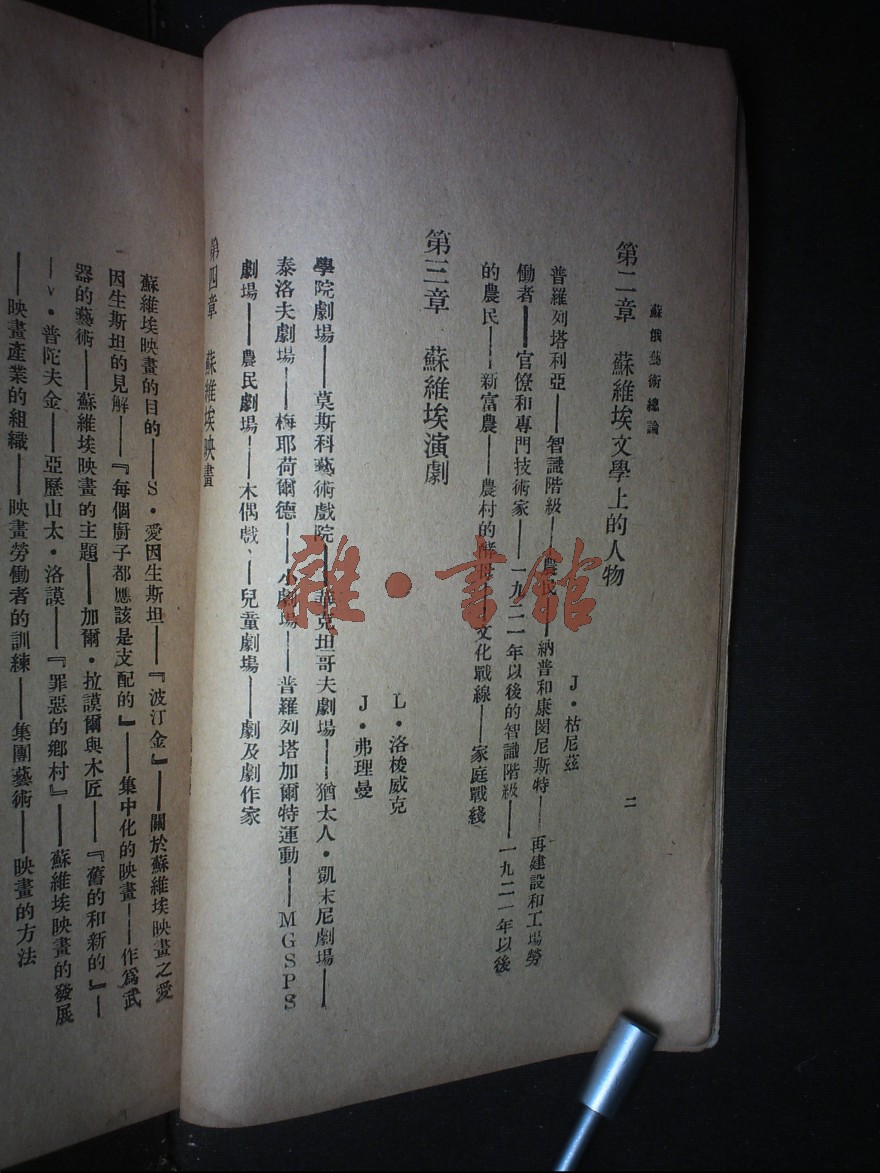 蘇俄藝術總論
二
第二章 蘇維埃文學上的人物
J・枯尼茲
普羅列塔利亞——智識階級——農民——納普和康閔尼斯特——再建設和工場勞
働者——官僚和專門技術家——一九二一年以後的智識階級——一九二一年以後
的農民——新富農——農村的——文化戰線——家庭戰綫
第三章 蘇維埃演劇
L・洛梭威克
J・弗理曼
學院劇場——莫斯科藝術戲院——克坦哥夫劇場——猶太人・凱末尼劇場——
泰洛夫劇場——梅耶荷爾德——小劇場——普羅列塔加爾特運動——MGSPS
劇場——農民劇場——木偶戲、——兒童劇場——劇及劇作家
第四章 蘇維埃映畫
蘇維埃映畫的目的——S・愛因生斯坦——『波汀金』——關於蘇維埃映畫之愛
因生斯坦的見解——『每個廚子都應該是支配的』——集中化的映畫——作爲武
器的藝術——蘇維埃映畫的主題——加爾・拉謨爾與木匠——『舊的和新的』—
—V・普陀夫金——亞歷山太・洛謨——『罪惡的鄉村』——蘇維埃映畫的發展
——映畫產業的組織——映畫勞働者的訓練——集團藝術——映畫的方法
雜・書館